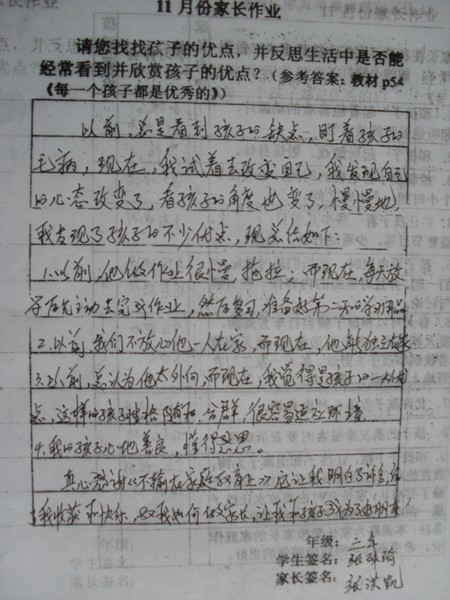 11月份家长作业
请您找找孩子的优点，并反思生活中是否能
经常看到并欣赏孩子的优点？（参考答案：教材p54
《每一个孩子都是优秀的》）
以前，总是看到孩子的缺点，盯着孩子的
毛病，现在，我试着去改变自己，我发现自己
的心态改变了，看孩子的角度也变了，慢慢地，
我发现了孩子的不少优点，现总结如下：
1.以前，他做作业很慢，拖拉；而现在，每天放
学后先主动去完成作业，然后复习，准备好第二天的学习用品
2.以前，我们不放心他一人在家，而现在，他能独立在家
3.以前，总认为他太外向，而现在，我觉得是孩子的一大优
点，这样的孩子性格随和，合群，很容易适应环境
4.我的孩子心地善良，懂得感恩。
真心感谢《不输在家庭教育上》
我收获和快乐，教我如何做家长，让我和孩子成为了好朋友！
年级：二年
学生签名：张
家长签名：张洪凯